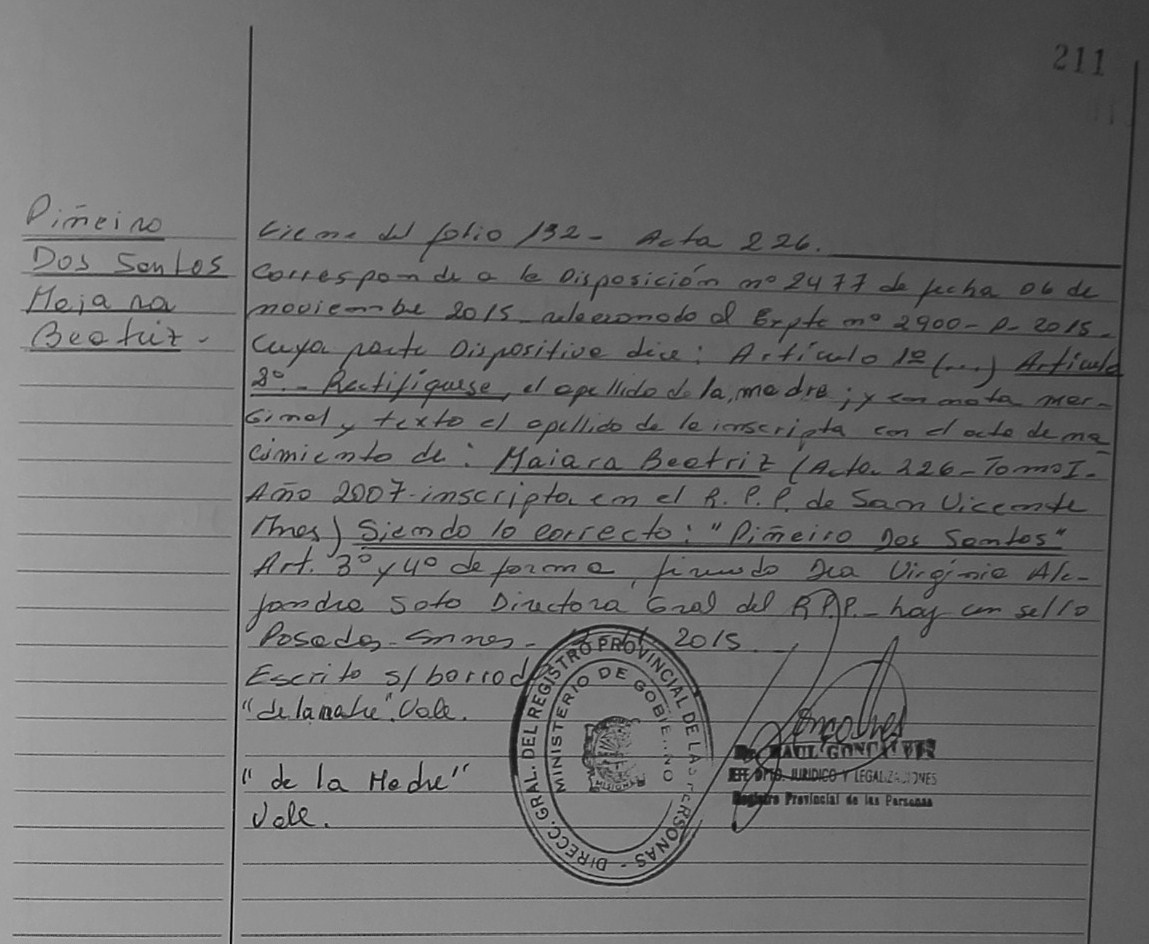 211
Piñeiro
Dos Santos
Maiara
Beatriz.-
Viene del folio 132- Acta 226.
Corresponde a la Disposición nº 2477 de fecha 06 de
noviembre 2015 relacionado al Expte nº 2900-P-2015-
Cuya parte Dispositiva dice: Artículo 1º (...) Artículo
2º.- Rectifíquese, el apellido de la, madre; y en nota mar-
ginal y texto el apellido de la inscripta en el acta de na
cimiento de: Maiara Beatriz (Acta 226-Tomo I-
Año 2007-inscripta en el R.P.P. de San Vicente
Mnes) Siendo lo correcto: "Piñeiro Dos Santos"
Art. 3º y 4º de forma, firmado Dra Virginia Ale-
jandra Soto Directora Gral del R.P.P.- hay un sello
Posadas- 2015
Escrito s/ borrad
"de la madre". Vale.
"de la Madre"
Vale.
DIRECC. GRAL. DEL REGISTRO PROVINCIAL DE LAS PERSONAS -
MINISTERIO DE GOBIERNO
MISIONES
Dr. RAUL GONCALVES
JEFE DPTO. JURIDICO Y LEGALIZACIONES
Registro Provincial de las Personas